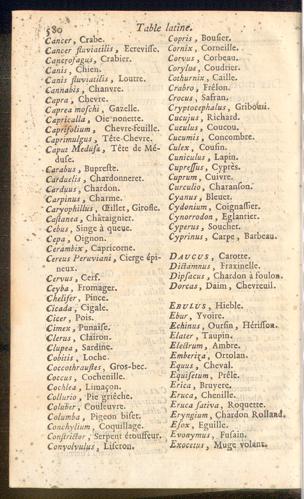 580
Table latine.
Cancer, Crabe.
Cancer fluviatilis, Ecrevisse.
Cancrofagus, Crabier.
Canis, Chien.
Canis fluviatilis, Loutre.
Cannabis, Chanvre.
Capra, Chevre.
Caprea moschi, Gazelle.
Capricalla, Oie nonette.
Caprifolium, Chevre-feuille.
Caprimulgus, Tête-Chevre.
Caput Medusæ, Tête de Mé-
duse.
Carabus, Bupreste.
Carduelis, Chardonneret.
Carduus, Chardon.
Carpinus, Charme.
Caryophillus, Œillet, Girofle.
Castanea, Châtaignier.
Cebus, Singe à queue.
Cepa, Oignon.
Cerambix, Capricorne.
Cereus Peruviani, Cierge épi-
neux.
Cervus, Cerf.
Ceyba, Fromager.
Chelifer, Pince.
Cicada, Cigale.
Cicer, Pois.
Cimex, Punaise.
Clerus, Clairon.
Clupea, Sardine.
Cobitis, Loche.
Coccothraustes, Gros-bec.
Coccus, Cochenille.
Cochlea, Limaçon.
Collurio, Pie griêche.
Coluber, Couleuvre.
Columba, Pigeon biset.
Conchylium, Coquillage.
Constrictor, Serpent étouffeur.
Convolvulus, Liseron.
Copris, Bousier.
Cornix, Corneille.
Corvus, Corbeau.
Corylus, Coudrier.
Cothurnix, Caille.
Crabro, Frêlon.
Crocus, Safran.
Cryptocephalus, Gribouri.
Cucujus, Richard.
Cuculus, Coucou.
Cucumis, Concombre.
Culex, Cousin.
Cuniculus, Lapin.
Cupressus, Cyprès.
Cuprum, Cuivre.
Curculio, Charanson.
Cyanus, Bleuet.
Cydonium, Coignassier.
Cynorrodon, Eglantier.
Cyperus, Souchet.
Cyprinus, Carpe, Barbeau.
DAUCUS, Carotte.
Dictamnus, Fraxinelle.
Dipsacus, Chardon à foulon.
Dorcas, Daim, Chevreuil.
EBULUS, Hieble.
Ebur, Yvoire.
Echinus, Oursin, Hérisson.
Elater, Taupin.
Electrum, Ambre.
Emberiza, Ortolan.
Equus, Cheval.
Equisetum, Prêle.
Erica, Bruyere.
Eruca, Chenille.
Eruca sativa, Roquette.
Eryngium, Chardon Rolland.
Esox, Eguille.
Evonymus, Fusain.
Exocetus, Muge volant.